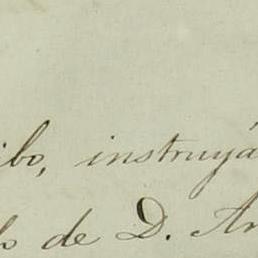 ibo, instruyá
lo de D. An